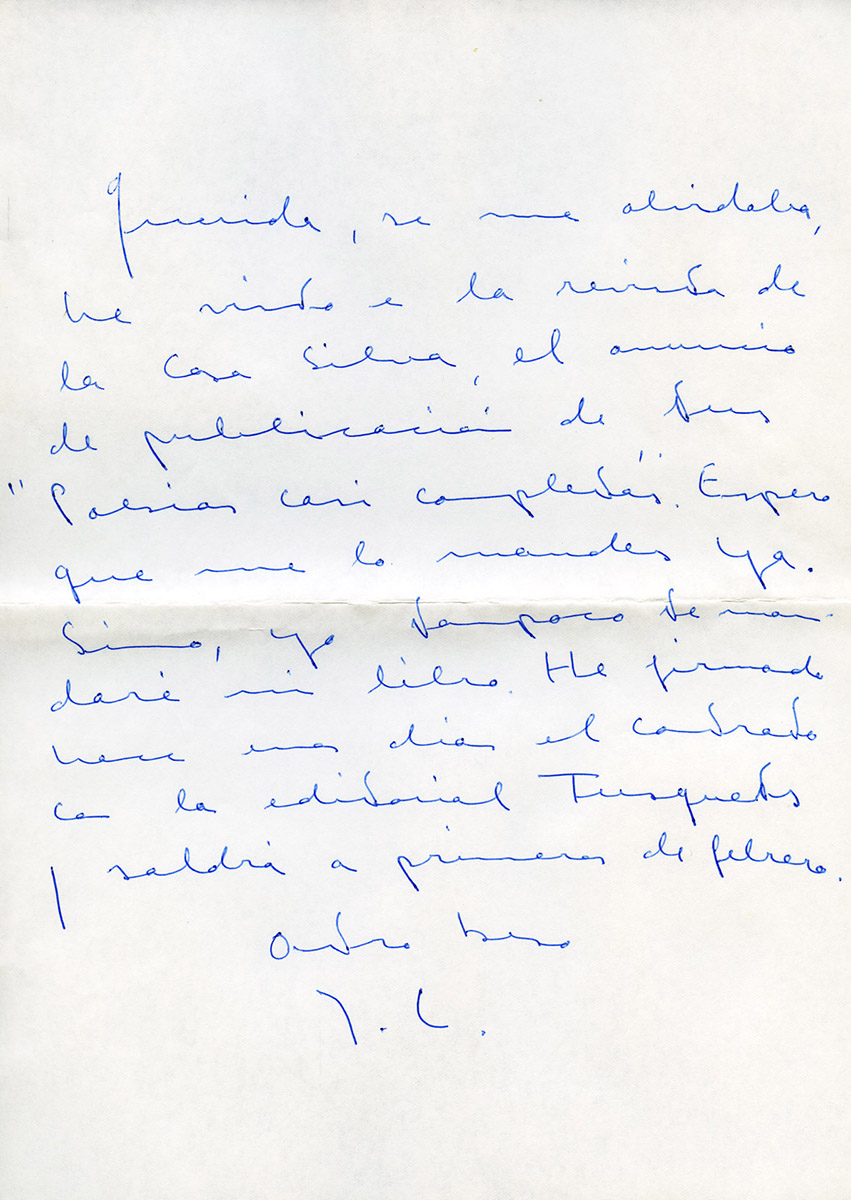 Querida, se me olvidaba,
he visto e la revista de
la Casa Silva, el anuncio
de publicación de tus
"Poesías casi completas". Espero
que me lo mandes ya.
Sino, yo tampoco te man-
daré mi libro. He firmado
hace unos días el contrato
co la editorial Tusquets
y saldrá a primeros de febrero.
Otro beso
J. L.